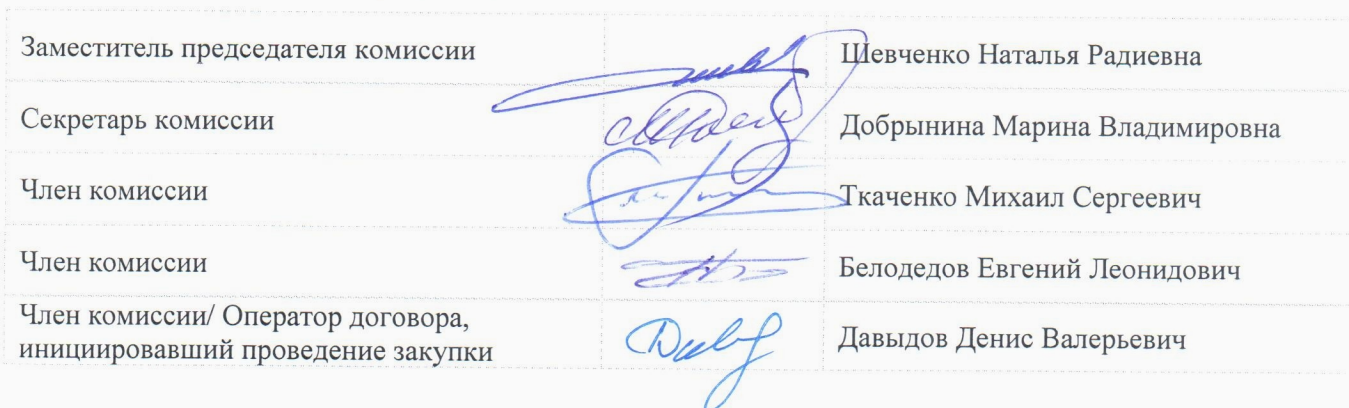 Заместитель председателя комиссии Шевченко Наталья Радиевна
Секретарь комиссии Добрынина Марина Владимировна
Член комиссии Ткаченко Михаил Сергеевич
Член комиссии Белодедов Евгений Леонидович
Член комиссии/ Оператор договора,
инициировавший проведение закупки Давыдов Денис Валерьевич